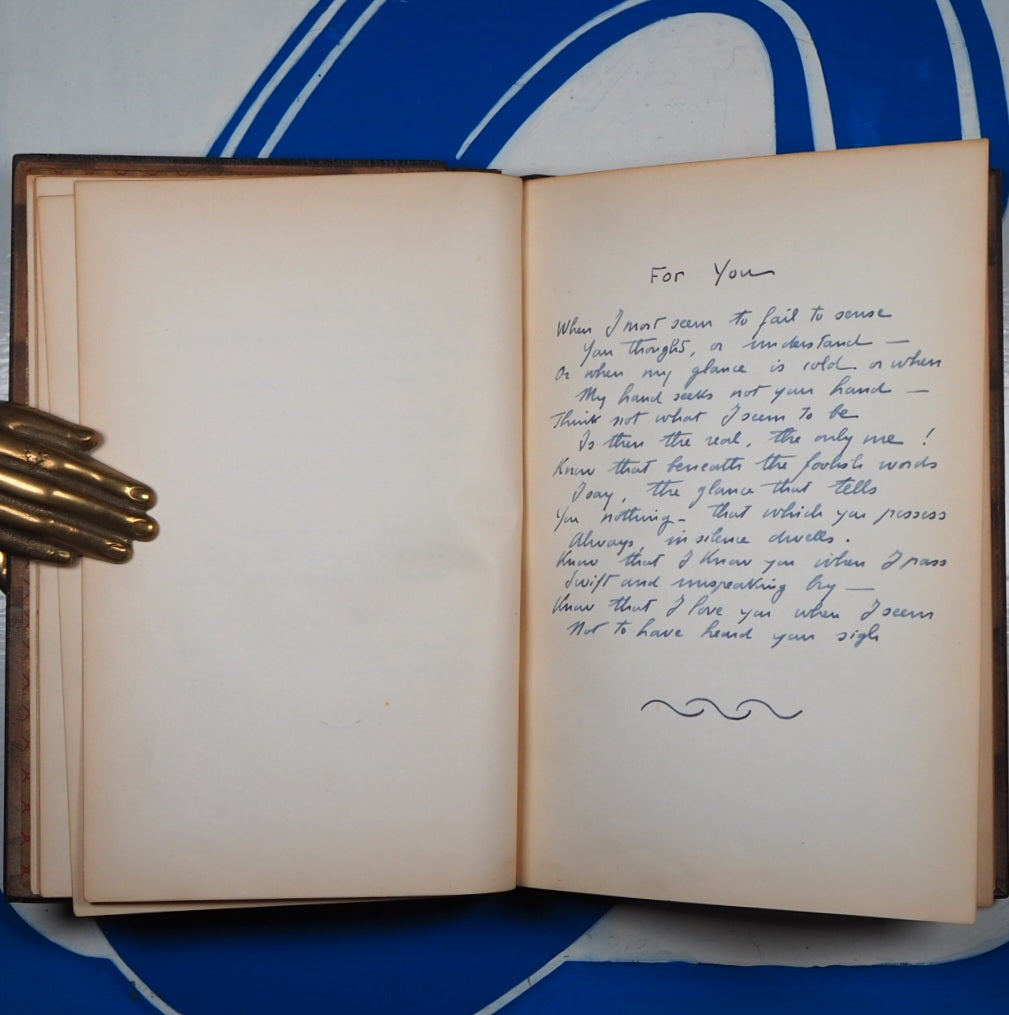 For You
When I most seem to fail to sense
Your thoughts, or understand —
Or when my glance is cold. or when
My hand seeks not your hand —
Think not what I seem to be
Is then the real, the only me !
Know that beneath the foolish words
I say, the glance that tells
You nothing - that which you possess
Always, in silence dwells.
Know that I know you when I pass
Swift and unspeaking by —
Know that I love you when I seem
Not to have heard your sigh